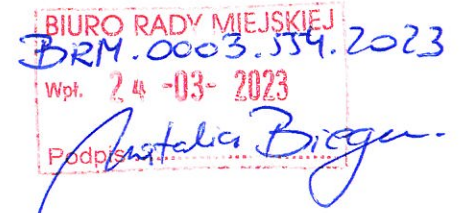 BIURO RADY MIEJSKIEJ
BRM.0003.554.2023
Wpł. 24 -03- 2023
Podpis Natalia